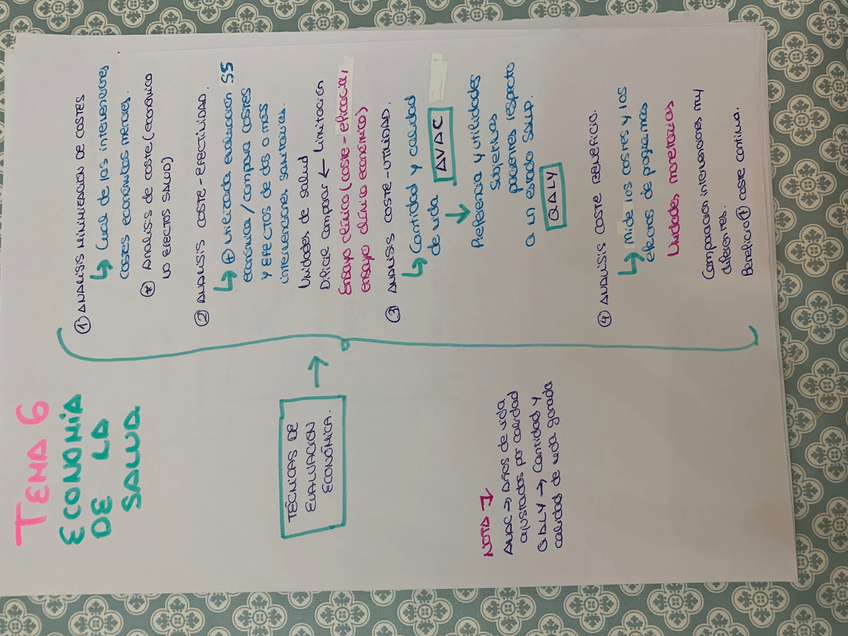 TEMA 6
ECONOMÍA
DE LA
SALUD
TÉCNICAS DE
EVALUACION
ECONÓMICA.
① ANALISIS MINIMIZACION DE COSTES
↳ Cual de las intervenciones
costes económicos menores.
* Analisis de coste (económico
no efectos salud)
② ANALISIS COSTE-EFECTIVIDAD.
↳ ⊕ utilizada evaluacion SS
económica / compara costes
y EFECTOS de dos o mas
intervenciones sanitarias.
Unidades de salud
Dificil comparar ← Limitación
Ensayo clínico (coste-eficacia,
ensayo clínico económico)
③ ANALISIS COSTE-UTILIDAD.
↳ Cantidad y calidad
de vida AVAC
↓
Preferencia y utilidades
subjetivas
pacientes respecto
a un estado salud.
QALY
④ ANALISIS COSTE BENEFICIO.
↳ Mide los costes y los
efectos de programas
Unidades monetarias
Comparación intervenciones muy
diferentes.
Beneficio ⊕ coste continua.
NOTA
AVAC → Años de vida
ajustados por calidad
QALY → Cantidad y
calidad de vida ganada